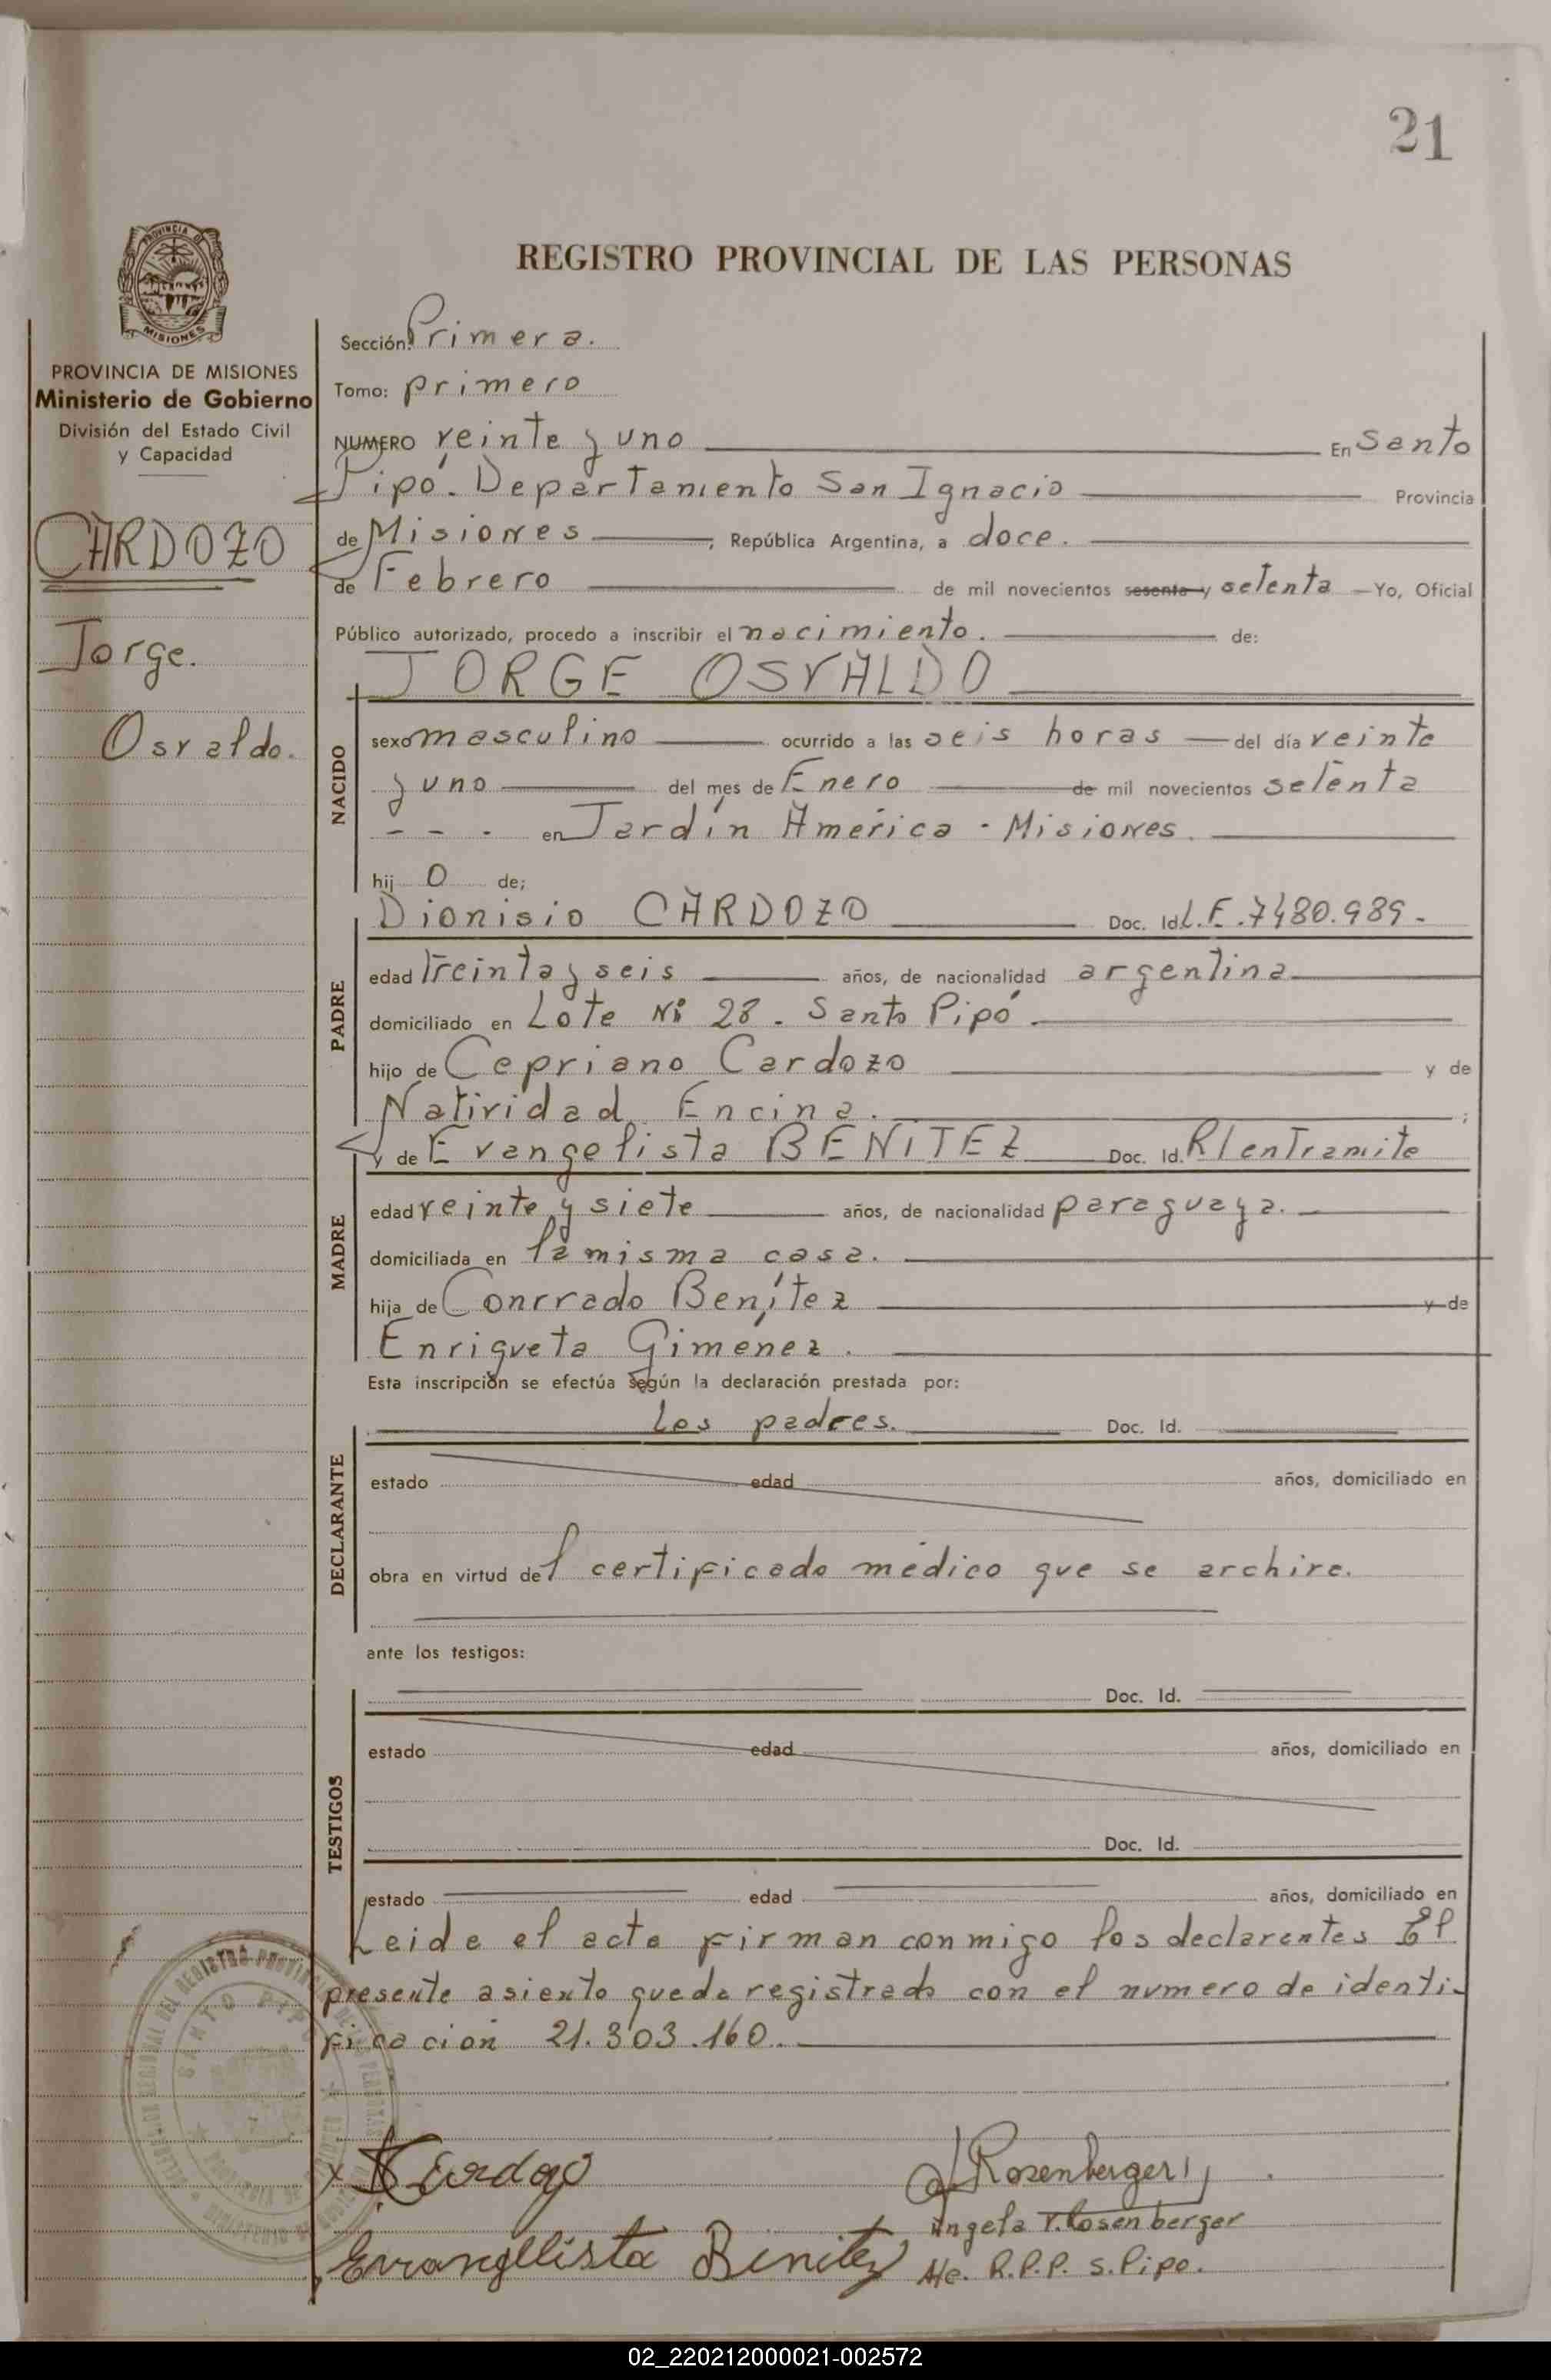 21
PROVINCIA DE
MISIONES
REGISTRO PROVINCIAL DE LAS PERSONAS
PROVINCIA DE MISIONES
Ministerio de Gobierno
División del Estado Civil
y Capacidad
CARDOZO
Jorge.
Osvaldo.
Sección: Primera.
Tomo: primero
NUMERO veinte y uno En Santo
Pipó. Departamento San Ignacio Provincia
de Misiones, República Argentina, a doce.
de Febrero de mil novecientos sesenta y setenta - Yo, Oficial
Público autorizado, procedo a inscribir el nacimiento. de:
JORGE OSVALDO
NACIDO
sexo masculino ocurrido a las seis horas del día veinte
y uno del mes de Enero de mil novecientos setenta
- - - en Jardín América - Misiones.
hij o de;
Dionisio CARDOZO Doc. Id. L.E. 7480.989.-
PADRE
edad treinta y seis años, de nacionalidad argentina
domiciliado en Lote Nº 28. Santo Pipó.
hijo de Cepriano Cardozo y de
Natividad Encina. ;
y de Evangelista BENITEZ Doc. Id. R/en Tramite
MADRE
edad veinte y siete años, de nacionalidad paraguaya.
domiciliada en la misma casa.
hija de Conrrado Benítez y de
Enriqueta Giménez.
Esta inscripción se efectúa según la declaración prestada por:
los padres. Doc. Id.
DECLARANTE
estado edad años, domiciliado en
obra en virtud del certificado médico que se archive.
ante los testigos:
Doc. Id.
TESTIGOS
estado edad años, domiciliado en
Doc. Id.
estado edad años, domiciliado en
Leida el acta firman conmigo los declarantes El
presente asiento queda registrado con el numero de identi-
ficación 21.303.160.
SANTO PIPO
x Cardozo
Rosenberger
Angela V. Rosenberger
Evangelista Benitez
R.P.P. S. Pipo.
02_220212000021-002572